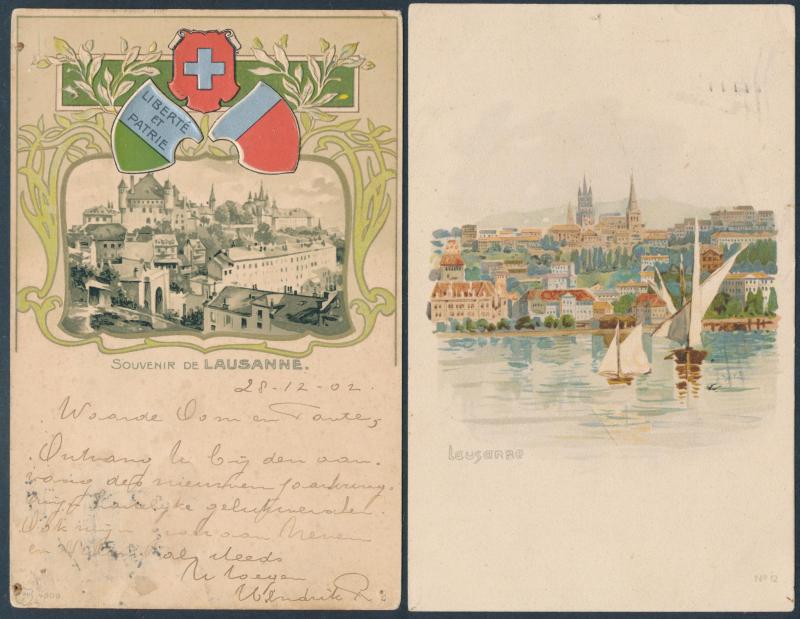 LIBERTÉ
ET
PATRIE
SOUVENIR DE LAUSANNE.
28-12-02.
Waarde Oom en Tante,
Ontvang bij den aan-
vang des nieuwen
hartelijke gelukwenschen.
Ook mijn aan Neven
en als steeds
Uw
Hendrik R
Lausanne
No 12